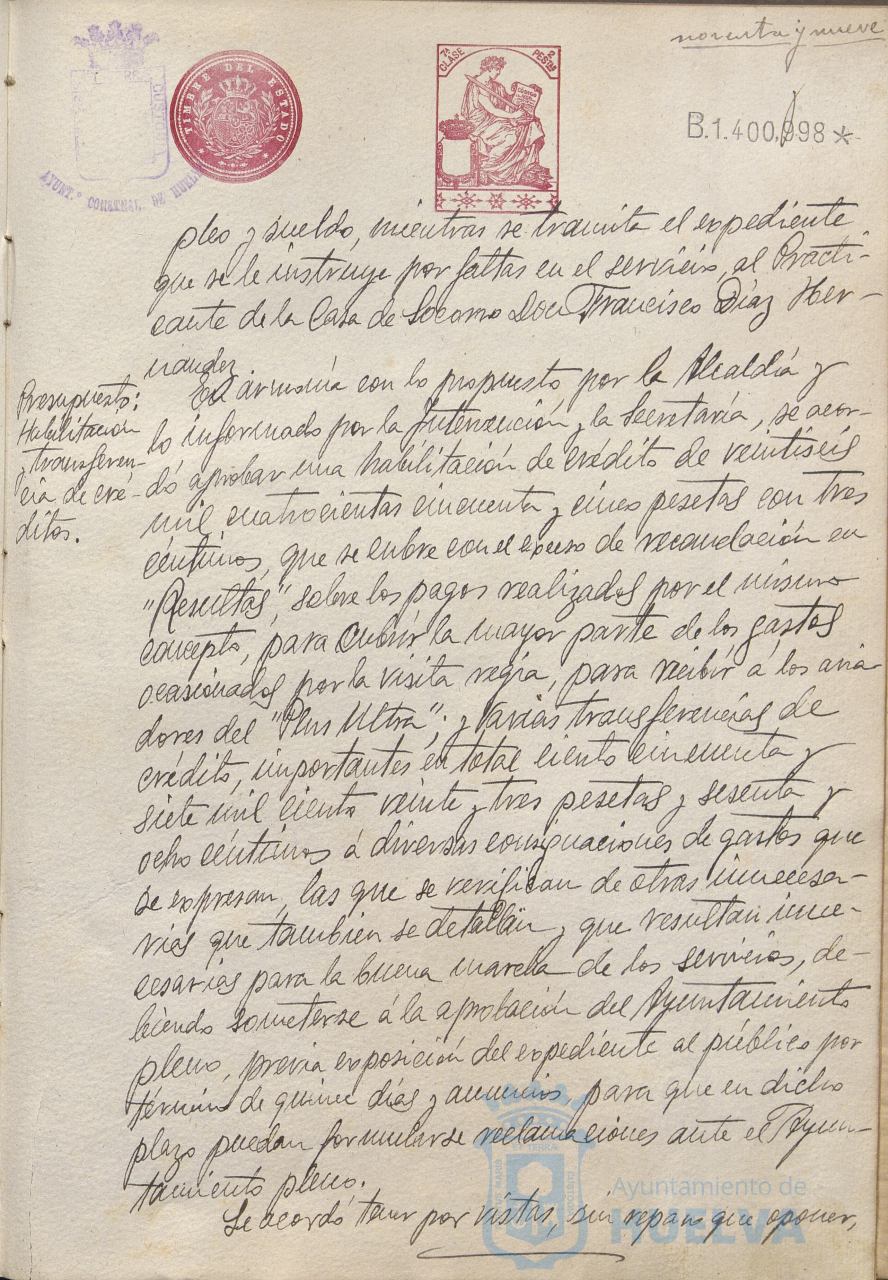 noventa y nueve
TIMBRE DEL ESTADO
7ª CLASE
2 PESETAS
B.1.400.998*
AYUNT.º CONSTNAL. DE HUELVA
pleo y sueldo, mientras se tramita el expediente
que se le instruye por faltas en el servicio, al Practi-
cante de la Casa de Socorro Don Francisco Díaz Her-
nandez.
Presupuesto:
Habilitación
y transferen-
cia de cré-
ditos.
En armonía con lo propuesto por la Alcaldía y
lo informado por la Intervención y la Secretaría, se acor-
dó aprobar una habilitación de crédito de veintiseis
mil cuatrocientas cincuenta y cinco pesetas con tres
céntimos, que se cubre con el exceso de recaudación en
"Resultas", sobre los pagos realizados por el mismo
concepto, para cubrir la mayor parte de los gastos
ocasionados por la visita regia, para recibir á los avia-
dores del "Plus Ultra"; y varias transferencias de
crédito, importantes en total ciento cincuenta y
siete mil ciento veinte y tres pesetas y sesenta y
ocho céntimos á diversas consignaciones de gastos que
se expresan, las que se verifican de otras innecesa-
rias que también se detallan y que resultan inne-
cesarias para la buena marcha de los servicios, de-
biendo someterse á la aprobación del Ayuntamiento
pleno, previa exposición del expediente al público por
término de quince días y anuncios para que en dicho
plazo puedan formularse reclamaciones ante el Ayun-
tamiento pleno.
Se acordó tener por vistas, sin reparo que oponer,
Ayuntamiento de
HUELVA